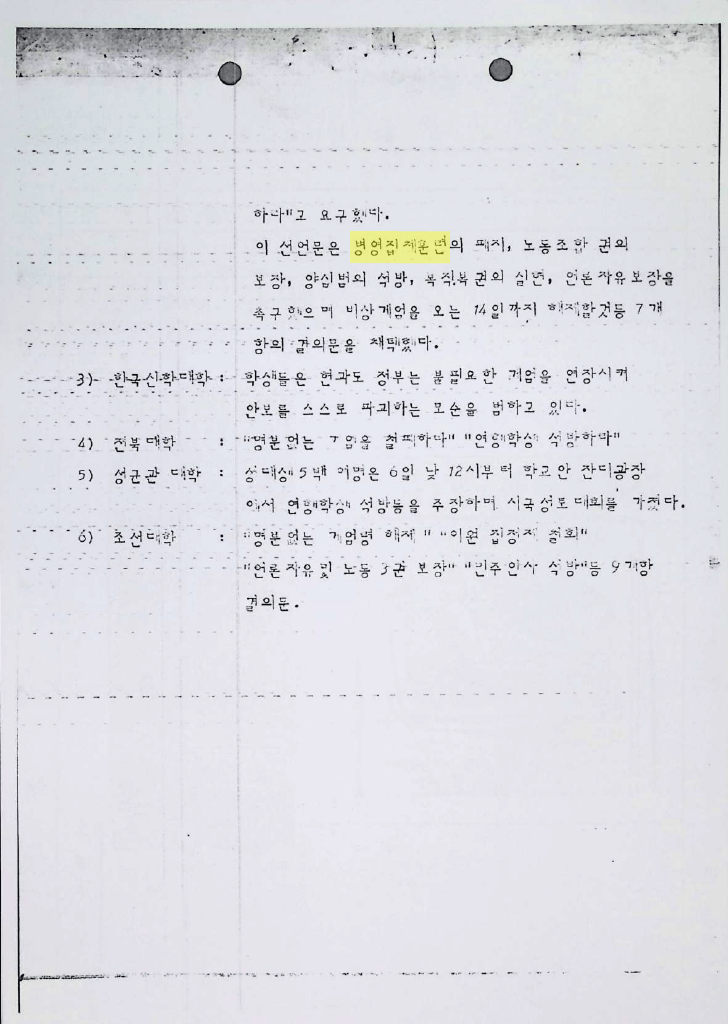 하다"고 요구했다.
이 선언문은 병영집체훈련의 폐지, 노동조합 권의
보장, 양심범의 석방, 복직복권의 실현, 언론자유보장을
촉구했으며 비상계엄을 오는 14일까지 해제할것등 7개
항의 결의문을 채택했다.
3) 한국신학대학 : 학생들은 현과도 정부는 불필요한 계엄을 연장시켜
안보를 스스로 파괴하는 모순을 범하고 있다.
4) 전북대학 : "명분없는 계엄을 철폐하다" "연행학생 석방하다"
5) 성균관 대학 : 성대생 5백 여명은 6일 낮 12시부터 학교안 잔디광장
에서 연행학생 석방등을 주장하며 시국성토대회를 가졌다.
6) 조선대학 : "명분없는 계엄령 해제" "이원 집정제 철회"
"언론자유및 노동 3권 보장" "민주인사 석방"등 9개항
결의문.